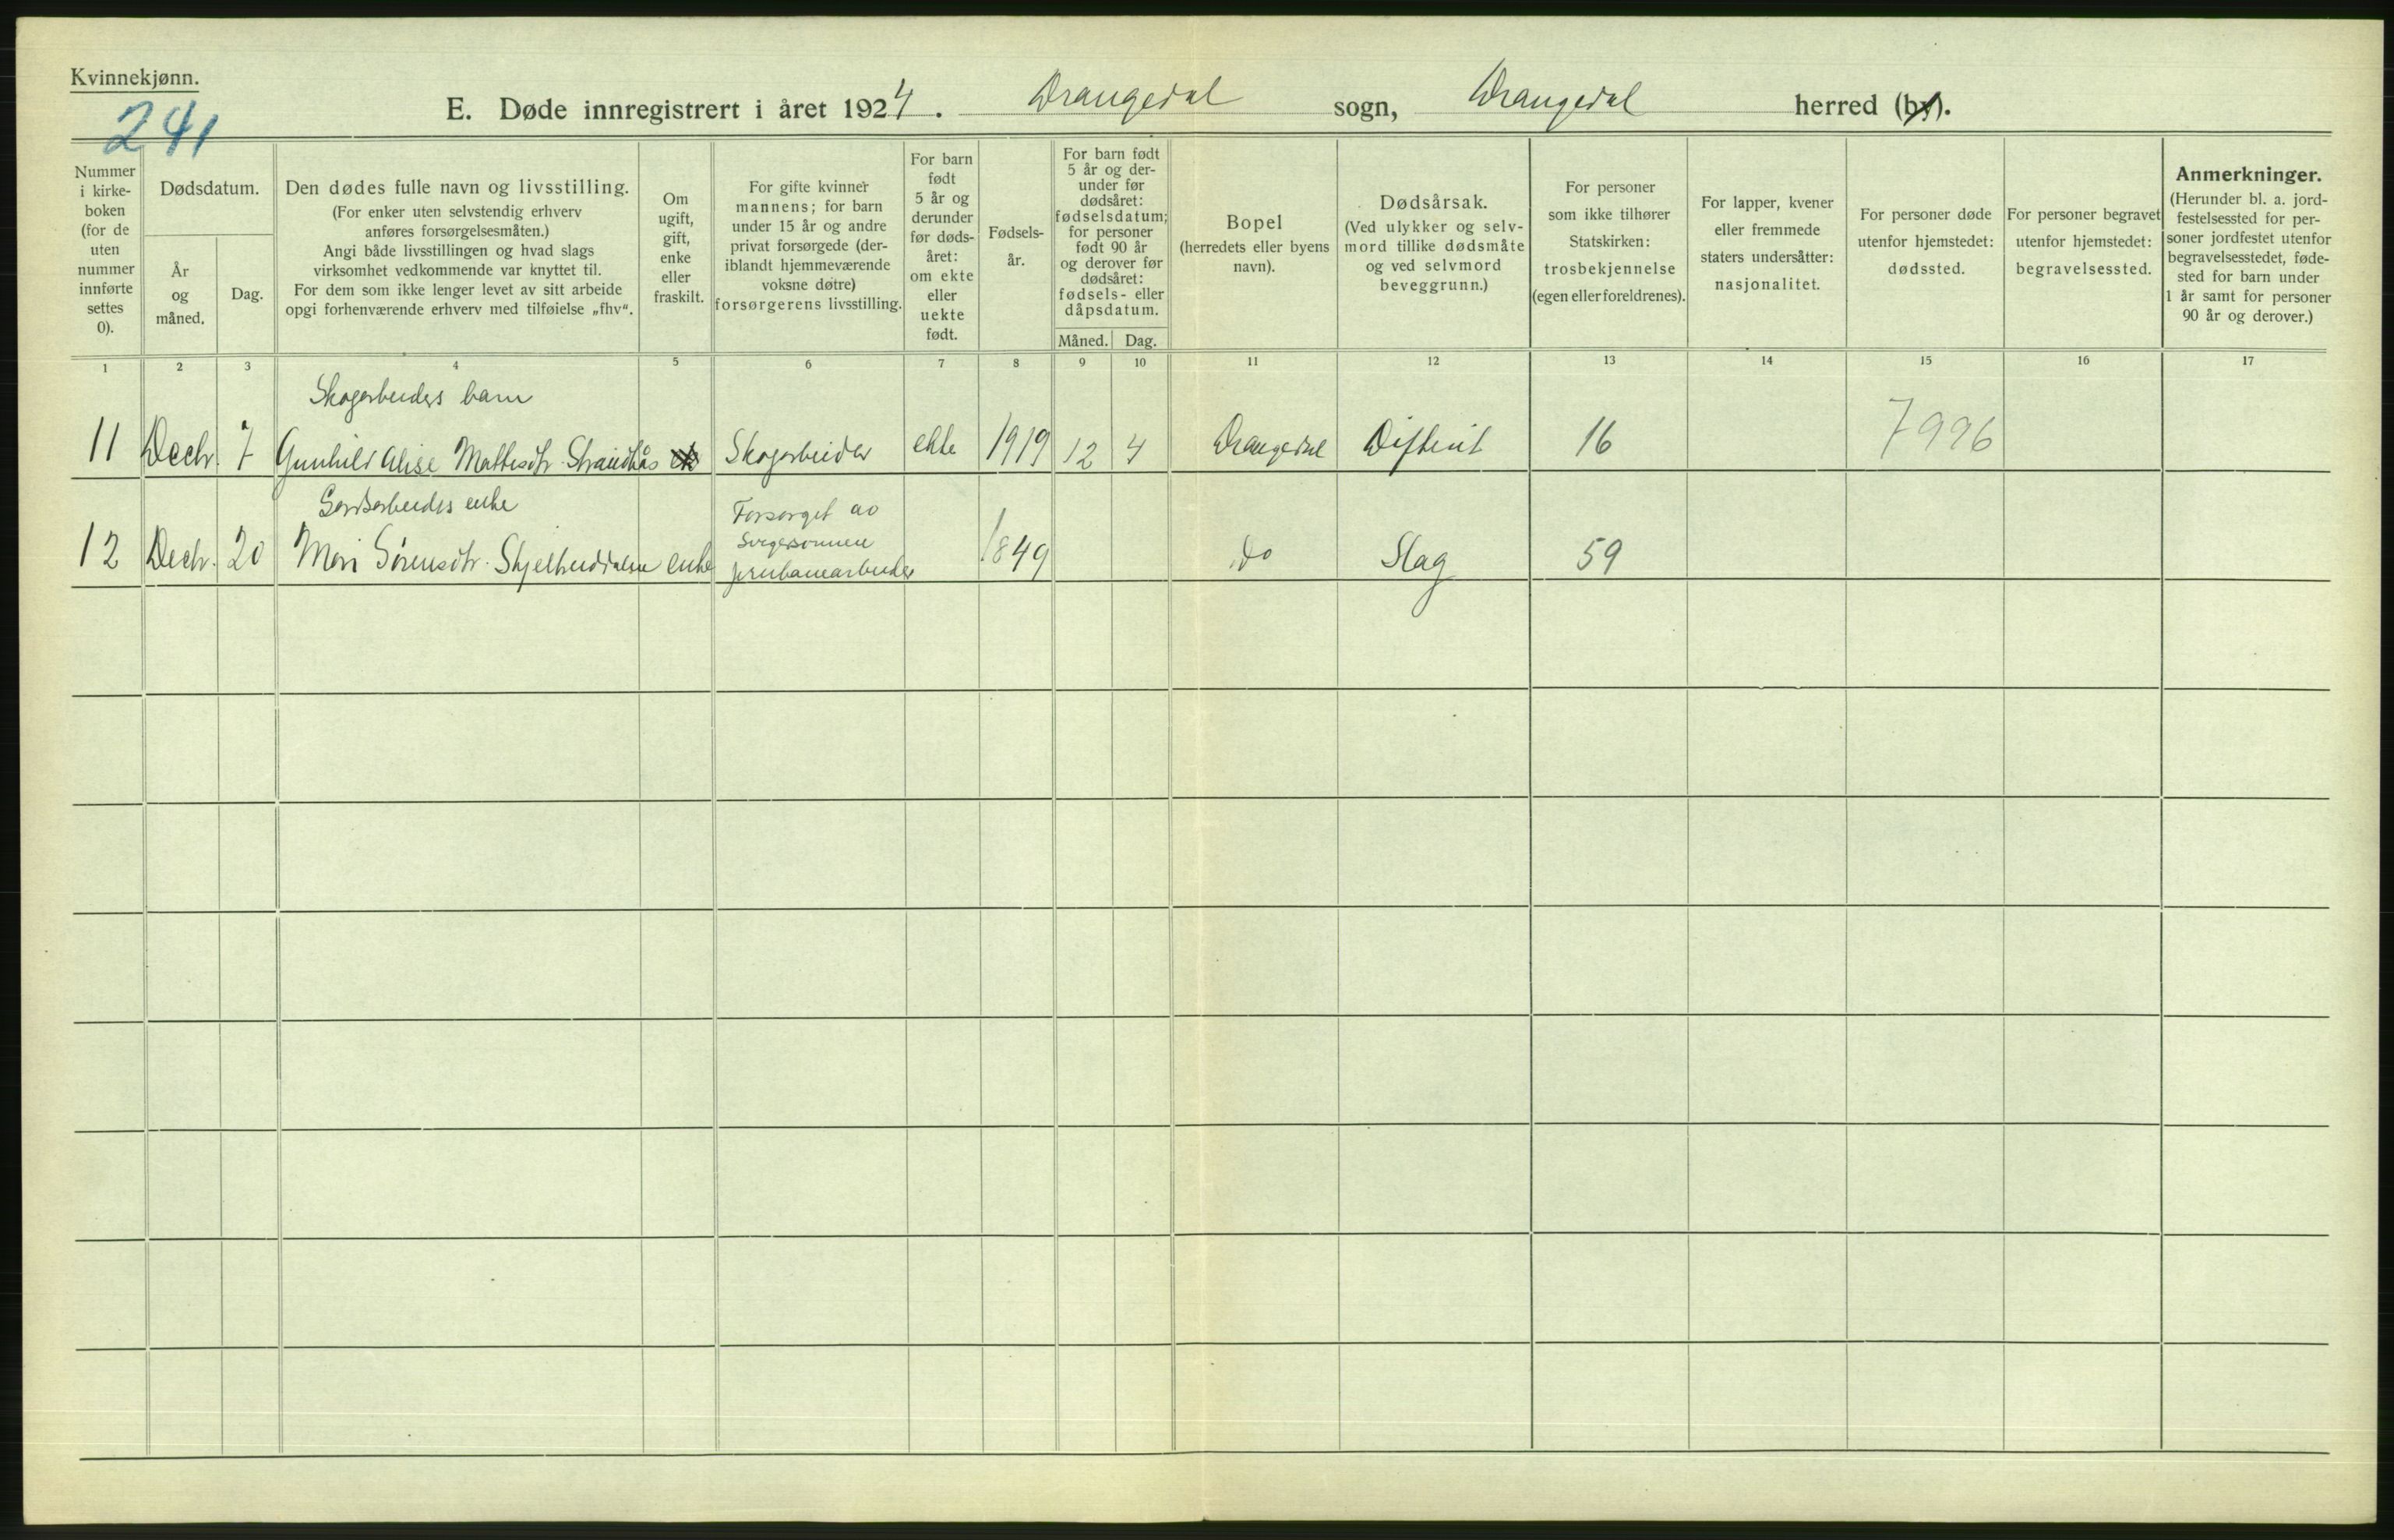 Kvinnekjønn.
241
E. Døde innregistrert i året 1924. Drangedal sogn, Drangedal herred (by).
Nummer
i kirke-
boken
(for de
uten
nummer
innførte
settes
0).
Dødsdatum.
År
og
måned.
Dag.
Den dødes fulle navn og livsstilling.
(For enker uten selvstendig erhverv
anføres forsørgelsesmåten.)
Angi både livsstillingen og hvad slags
virksomhet vedkommende var knyttet til.
For dem som ikke lenger levet av sitt arbeide
opgi forhenværende erhverv med tilføielse „fhv“.
Om
ugift,
gift,
enke
eller
fraskilt.
For gifte kvinner
mannens; for barn
under 15 år og andre
privat forsørgede (der-
iblandt hjemmeværende
voksne døtre)
forsørgerens livsstilling.
For barn
født
5 år og
derunder
før døds-
året:
om ekte
eller
uekte
født.
Fødsels-
år.
For barn født
5 år og der-
under før
dødsåret:
fødselsdatum;
for personer
født 90 år
og derover før
dødsåret:
fødsels- eller
dåpsdatum.
Måned. Dag.
Bopel
(herredets eller byens
navn).
Dødsårsak.
(Ved ulykker og selv-
mord tillike dødsmåte
og ved selvmord
beveggrunn.)
For personer
som ikke tilhører
Statskirken:
trosbekjennelse
(egen eller foreldrenes).
For lapper, kvener
eller fremmede
staters undersåtter:
nasjonalitet.
For personer døde
utenfor hjemstedet:
dødssted.
For personer begravet
utenfor hjemstedet:
begravelsessted.
Anmerkninger.
(Herunder bl. a. jord-
festelsessted for per-
soner jordfestet utenfor
begravelsesstedet, føde-
sted for barn under
1 år samt for personer
90 år og derover.)
1 2 3 4 5 6 7 8 9 10 11 12 13 14 15 16 17
Skogarbeiders barn
11 Decbr. 7 Gunhild Alise Mattisdtr. Strandhås Skogarbeider ekte 1919 12 4 Drangedal Difterit 16 7996
enke
Forsørget av
Svigersønnen
12 Decbr. 20 Mari Sørensdtr. enke 1849 do Slag 59
jernbanearbeider